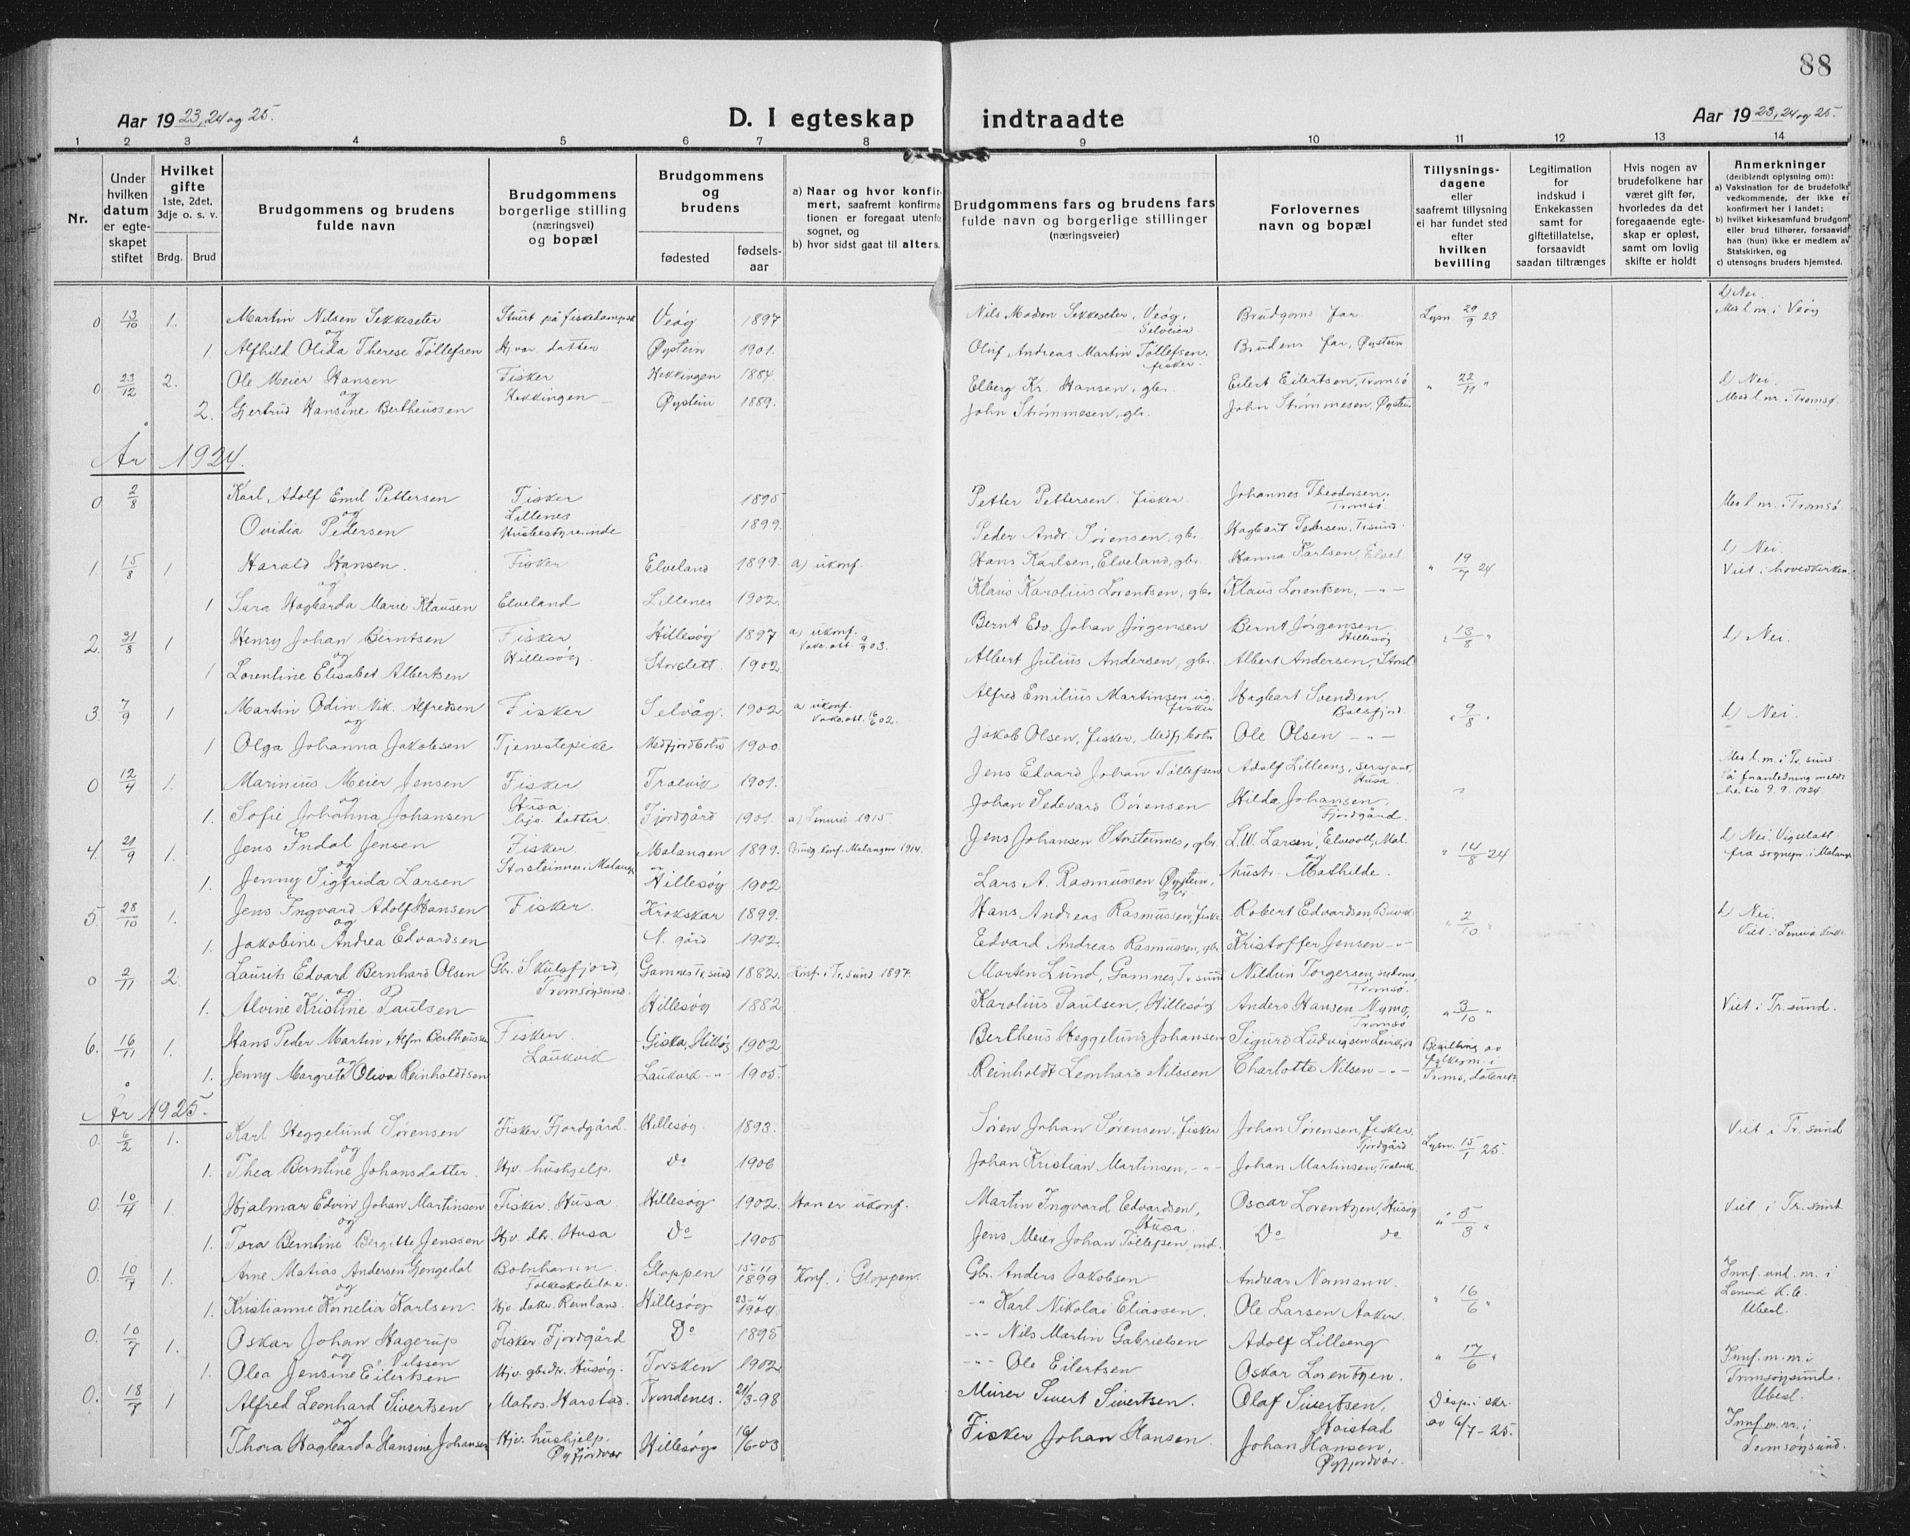 88
Aar 1923, 24 og 25.
D. I egteskap indtraadte
Aar 1923, 24 og 25.
1 2 3 4 5 6 7 8 9 10 11 12 13 14
Nr.
Under hvilken datum er egteskapet stiftet
Hvilket gifte 1ste, 2det, 3dje o. s. v.
Brdg. Brud
Brudgommens og brudens fulde navn
Brudgommens borgerlige stilling (næringsvei) og bopæl
Brudgommens og brudens
fødested fødselsaar
a) Naar og hvor konfirmert, saafremt konfirmationen er foregaat utenfor sognet, og
b) hvor sidst gaat til alters.
Brudgommens fars og brudens fars fulde navn og borgerlige stillinger (næringsveier)
Forlovernes navn og bopæl
Tillysningsdagene eller saafremt tillysning ei har fundet sted efter hvilken bevilling
Legitimation for indskud i Enkekassen samt for giftetillatelse, forsaavidt saadan tiltrænges
Hvis nogen av brudefolkene har været gift før, hvorledes da det foregaaende egteskap er opløst, samt om lovlig skifte er holdt
Anmerkninger
(deriblandt oplysning om):
a) Vaksination for de brudefolks vedkommende, der ikke er konfirmert her i landet;
b) hvilket kirkesamfund brudgom eller brud tilhører, forsaavidt han (hun) ikke er medlem av Statskirken, og
c) utensogns bruders hjemsted.
0 13/10 1. Martin Nilsen Sekkeseter Veøy 1897 Nils Madsen Sekkeseter, Veøy, Selveier Brudgoms far Lysn. 29/9 23 b) Nei. Medl nr. i Veøy
og
1 Alfhild Olida Therese Tøllefsen Hj.vær. datter Øystein 1901. Oluf Andreas Martin Tøllefsen, fisker. Brudens far, Øystein
0 23/12 2. Ole Meier Hansen Fisker Hekkingen 1884 Elberg Kr. Hansen, gbr. Eilert Eilertsen, Tromsø " 22/11 " b) Nei.
og
2. Gjertrud Hansine Bertheussen Hekkingen Øystein 1889. John Strømmesen, gbr. John Strømmesen, Øystein Medl nr. i Tromsø.
År 1924.
0 2/8 Karl Adolf Emil Pettersen Fisker Lillenes 1895 Petter Pettersen, fisker. Johannes Theodorsen, Tromsø. Medl nr. i Tromsø
og
Ovidia Pedersen Husbestyrerinde 1899. Peder Andr. Sørensen, gbr. Hagbart Pedersen, Tr.sund.
1. 15/8 1 Harald Hansen. Fisker Elveland 1899. a) ukonf. Hans Karlsen, Elveland, gbr. Hanna Karlsen, Elvel. " 19/7 24 b) Nei. Viet i hovedkirken.
og
1 Sara Hagbarda Marie Klausen Elveland Lillenes 1902. Klaus Karolius Lorentsen, gbr. Klaus Lorentsen, -"-
2. 31/8 1 Henry Johan Berntsen Fisker Hillesøy 1897 a) ukonf. Bernt Edv. Johan Jørgensen Bernt Jørgensen Hillesøy " 13/8 " b) Nei.
og
1 Lorentine Elisabet Albertsen Hillesøy. Storslett 1902 Albert Julius Andersen, gbr. Albert Andersen, Storsl
3. 7/9 1 Martin Odin Nik. Alfredsen Fisker Selvåg. 1902. a ukonf. Alfred Emilius Martinsen fisker Hagbart Svendsen, Balsfjord. " 9/8 " b) Nei.
og
1 Olga Johanna Jakobsen Tjenestepike Medfjordbotn 1900. Jakob Olsen, fisker, Medfj.botn Ole Olsen -"-
0 12/4 1. Marinius Meier Jensen Fisker Husa Tralvik 1901. Jens Edvard Johan Tøllefsen Adolf Lilleeng, sersjant, Husa Medl. m. i Tr.sund.
og
1. Sofie Johanna Johansen hjv. datter Fjordgård 1901. a) Lenvik 1915 Johan Pedevard Sørensen Hilda Johansen. Fjordgård.
4. 21/9 1. Jens Indal Jensen Fisker. Malangen 1899. Brudg. konf. Malangen 1914. Jens Johansen Storsteinnes, gbr. L.W. Larsen, Elvevoll, Mal. " 14/8 24 b) Nei Vigselatt. fra sognepr. i Malangen
og
1. Jenny Sigfrida Larsen Storsteinnes i Malangen Hillesøy 1902 Lars A. Rasmussen Øystein, gbr. og hustr. Mathilde.
5. 28/10 1. Jens Ingvard Adolf Hansen Fisker. Krokskar 1899. Hans Andreas Rasmussen, fisker Robert Edvardsen, " 2/10 " b) Nei. Viet i Lenvik kirke
og
1. Jakobine Andrea Edvardsen N. gård 1902. Edvard Andreas Rasmussen, gbr. Kristoffer Jensen -"-
0 2/11 2. Laurits Edvard Bernhard Olsen Gbr. Skulsfjord, Tromsøysund. Gamnes Tr.sund 1882. Konf. i Tr.sund 1897. Morten Lund, Gamnes, Tr.sund Torgersen, Tromsø.
og
1. Alvine Kristine Paulsen Hillesøy 1882 Karolius Paulsen, Hillesøy Anders Hansen Nymo, Tromsø " 3/10 " Viet i Tr.sund.
6. 16/11 1. Hans Peder Martin Alfm Bertheussen Fisker. Laukvik Giska, Hillesøy 1902 Bertheus Heggelund Johansen Sigurd Ludvigsen Bevilling av fylkesm. i Troms,
og
1. Jenny Margrete Oliva Reinholdtsen Laukvik -"- 1905. Reinholdt Leonhard Nilssen Charlotte Nilsen -"-
År 1925.
0. 6/2 1. Karl Heggelund Sørensen Fisker, Fjordgård. Hillesøy 1893. Søren Johan Sørensen, fisker Johan Sørensen, fisker, Fjordgård Lysn. 15/1 25. Viet i Tr.sund
og
1. Thea Berntine Johansdatter. Hjv. hushjelp. Do 1906 Johan Kristian Martinsen, -"- Johan Martinsen, Tralvik
0. 10/4 1. Hjalmar Edvin Johan Martinsen Fisker, Husa. Hillesøy 1902. Han er ukonf. Martin Ingvard Edvardsen, Husa. Oscar Lorentzen, Husøy " 5/3 " Viet i Tr.sund
og
1. Tora Berntine Bergitte Jenssen Hjv. dtr. Husa Do 1905 Jens Meier Johan Tøllefsen, ind. Do do
0. 10/7 1. Arne Matias Andersen Gjengedal Botnhamn Folkeskolelær. Gloppen 15-11 1899 Konf. i Gloppen. Gbr. Anders Jakobsen Andreas Normann. " 16/6 " Innf. und. nr. i Lenvik K.B. Ubesl.
og
1. Kristianne Kornelia Karlsen. Hjv. datr. Reinland. Hillesøy 23-4 1904. -"- Karl Nikolai Eliassen. Ole Larsen Aaker.
0. 10/7 1. Oskar Johan Hagerup Nilssen Fisker. Fjordgård Do 1895 -"- Nils Martin Gabrielsen Adolf Lilleeng " 17/6 " Innf. m. nr. i Tromsøysund. Ubesl.
og
1. Olea Jensine Eilertsen Hjv. gbr.dr. Husøy. Torsken 1902. -"- Ole Eilertsen Oskar Lorentzen.
0. 18/7 1 Alfred Leonhard Sivertsen Matros. Harstad. Trondenes. 21/3-98 Murer Sivert Sivertsen. Olaf Sivertsen, Harstad Disp. i skr. av 6/7-25. Innf. m. nr. i Tromsøysund.
og
Thora Hagbarda Hansine Johansen Hjv. hushjelp. Øyfjordvær Hillesøy 16/6-03 Fisker Johan Hansen. Johan Hansen, Øyfjordvær.